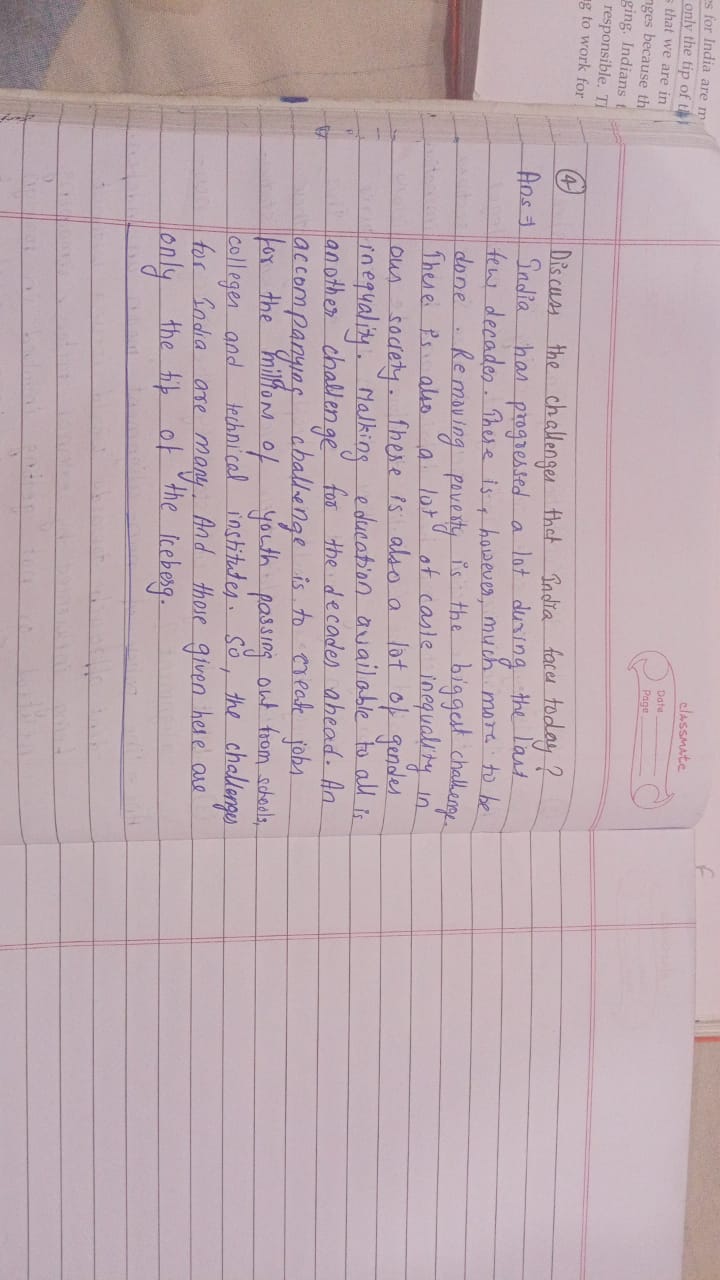 es for India are m
only the tip of t
s that we are in
nges because th
ging. Indians t
responsible. T
ng to work for
classmate
Date
Page
4
Discuss the challenges that India faces today?
Ans ⇒ India has progressed a lot during the last
few decades. There is, however, much more to be
done. Removing poverty is the biggest challenge.
There is also a lot of caste inequality in
our society. There is also a lot of gender
inequality. Malking education available to all is
another challenge for the decades ahead. An
accompanying challenge is to create jobs
for the millions of youth passing out from schools,
colleges and technical institutes. So, the challenges
for India are many. And those given here are
only the tip of the iceberg.